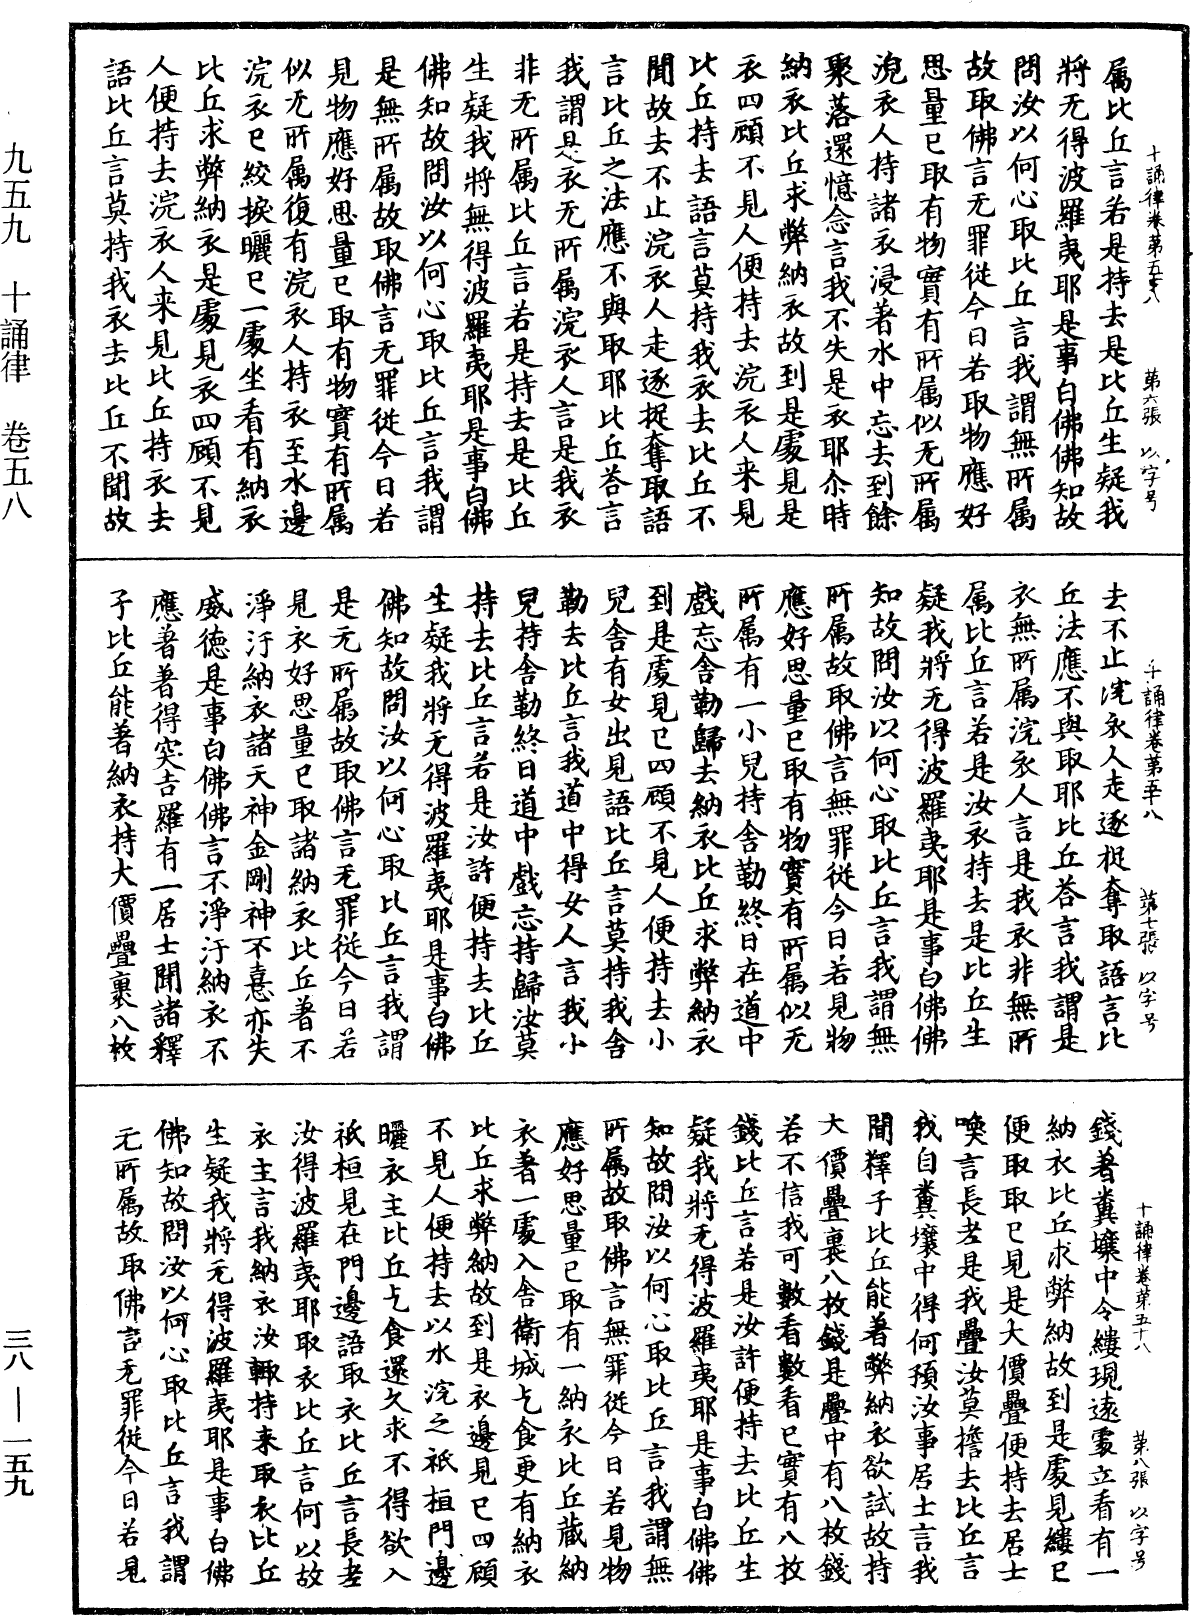 九五九　十誦律　卷五八
三八—一五九
十誦律卷第五十八　第六張　以字号
属比丘言若是持去是比丘生疑我
將无得波羅夷耶是事白佛佛知故
問汝以何心取比丘言我謂無所属
故取佛言无罪從今日若取物應好
思量已取有物實有所属似无所属
浣衣人持諸衣浸著水中忘去到餘
聚落還憶念言我不失是衣耶尒時
納衣比丘求弊納衣故到是處見是
衣四顧不見人便持去浣衣人来見
比丘持去語言莫持我衣去比丘不
聞故去不止浣衣人走逐捉奪取語
言比丘之法應不與取耶比丘荅言
我謂是衣无所属浣衣人言是我衣
非无所属比丘言若是持去是比丘
生疑我將無得波羅夷耶是事白佛
佛知故問汝以何心取比丘言我謂
是無所属故取佛言无罪從今日若
見物應好思量已取有物實有所属
似无所属復有浣衣人持衣至水邊
浣衣已絞捩曬已一處坐看有納衣
比丘求弊納衣是處見衣四顧不見
人便持去浣衣人来見比丘持衣去
語比丘言莫持我衣去比丘不聞故
十誦律卷第五十八　第七張　以字号
去不止浣衣人走逐捉奪取語言比
丘法應不與取耶比丘荅言我謂是
衣無所属浣衣人言是我衣非無所
属比丘言若是汝衣持去是比丘生
疑我將无得波羅夷耶是事白佛佛
知故問汝以何心取比丘言我謂無
所属故取佛言無罪從今日若見物
應好思量已取有物實有所属似无
所属有一小兒持舍勒終日在道中
戲忘舍勒歸去納衣比丘求弊納衣
到是處見已四顧不見人便持去小
兒舍有女出見語比丘言莫持我舍
勒去比丘言我道中得女人言我小
兒持舍勒終日道中戲忘持歸汝莫
持去比丘言若是汝許便持去比丘
生疑我將无得波羅夷耶是事白佛
佛知故問汝以何心取比丘言我謂
是无所属故取佛言无罪從今日若
見衣好思量已取諸納衣比丘著不
淨汙納衣諸天神金剛神不憙亦失
威德是事白佛佛言不淨汙納衣不
應著著得突吉羅有一居士聞諸釋
子比丘能著納衣持大價疊裹八枚
十誦律卷第五十八　第八張　以字号
錢著糞壤中令縷現遠處立看有一
納衣比丘求弊納故到是處見縷已
便取取已見是大價疊便持去居士
喚言長老是我疊汝莫擔去比丘言
我自糞壤中得何預汝事居士言我
聞釋子比丘能著弊納衣欲試故持
大價疊裹八枚錢是疊中有八枚錢
若不信我可數看數看已實有八枚
錢比丘言若是汝許便持去比丘生
疑我將无得波羅夷耶是事白佛佛
知故問汝以何心取比丘言我謂無
所属故取佛言無罪從今日若見物
應好思量已取有一納衣比丘蔵納
衣著一處入舍衛城乞食更有納衣
比丘求弊納故到是衣邊見已四顧
不見人便持去以水浣之祇桓門邊
曬衣主比丘乞食還久求不得欲入
祇桓見在門邊語取衣比丘言長老
汝得波羅夷耶取衣比丘言何以故
衣主言我納衣汝輙持来取衣比丘
生疑我將无得波羅夷耶是事白佛
佛知故問汝以何心取比丘言我謂
无所属故取佛言无罪從今日若見